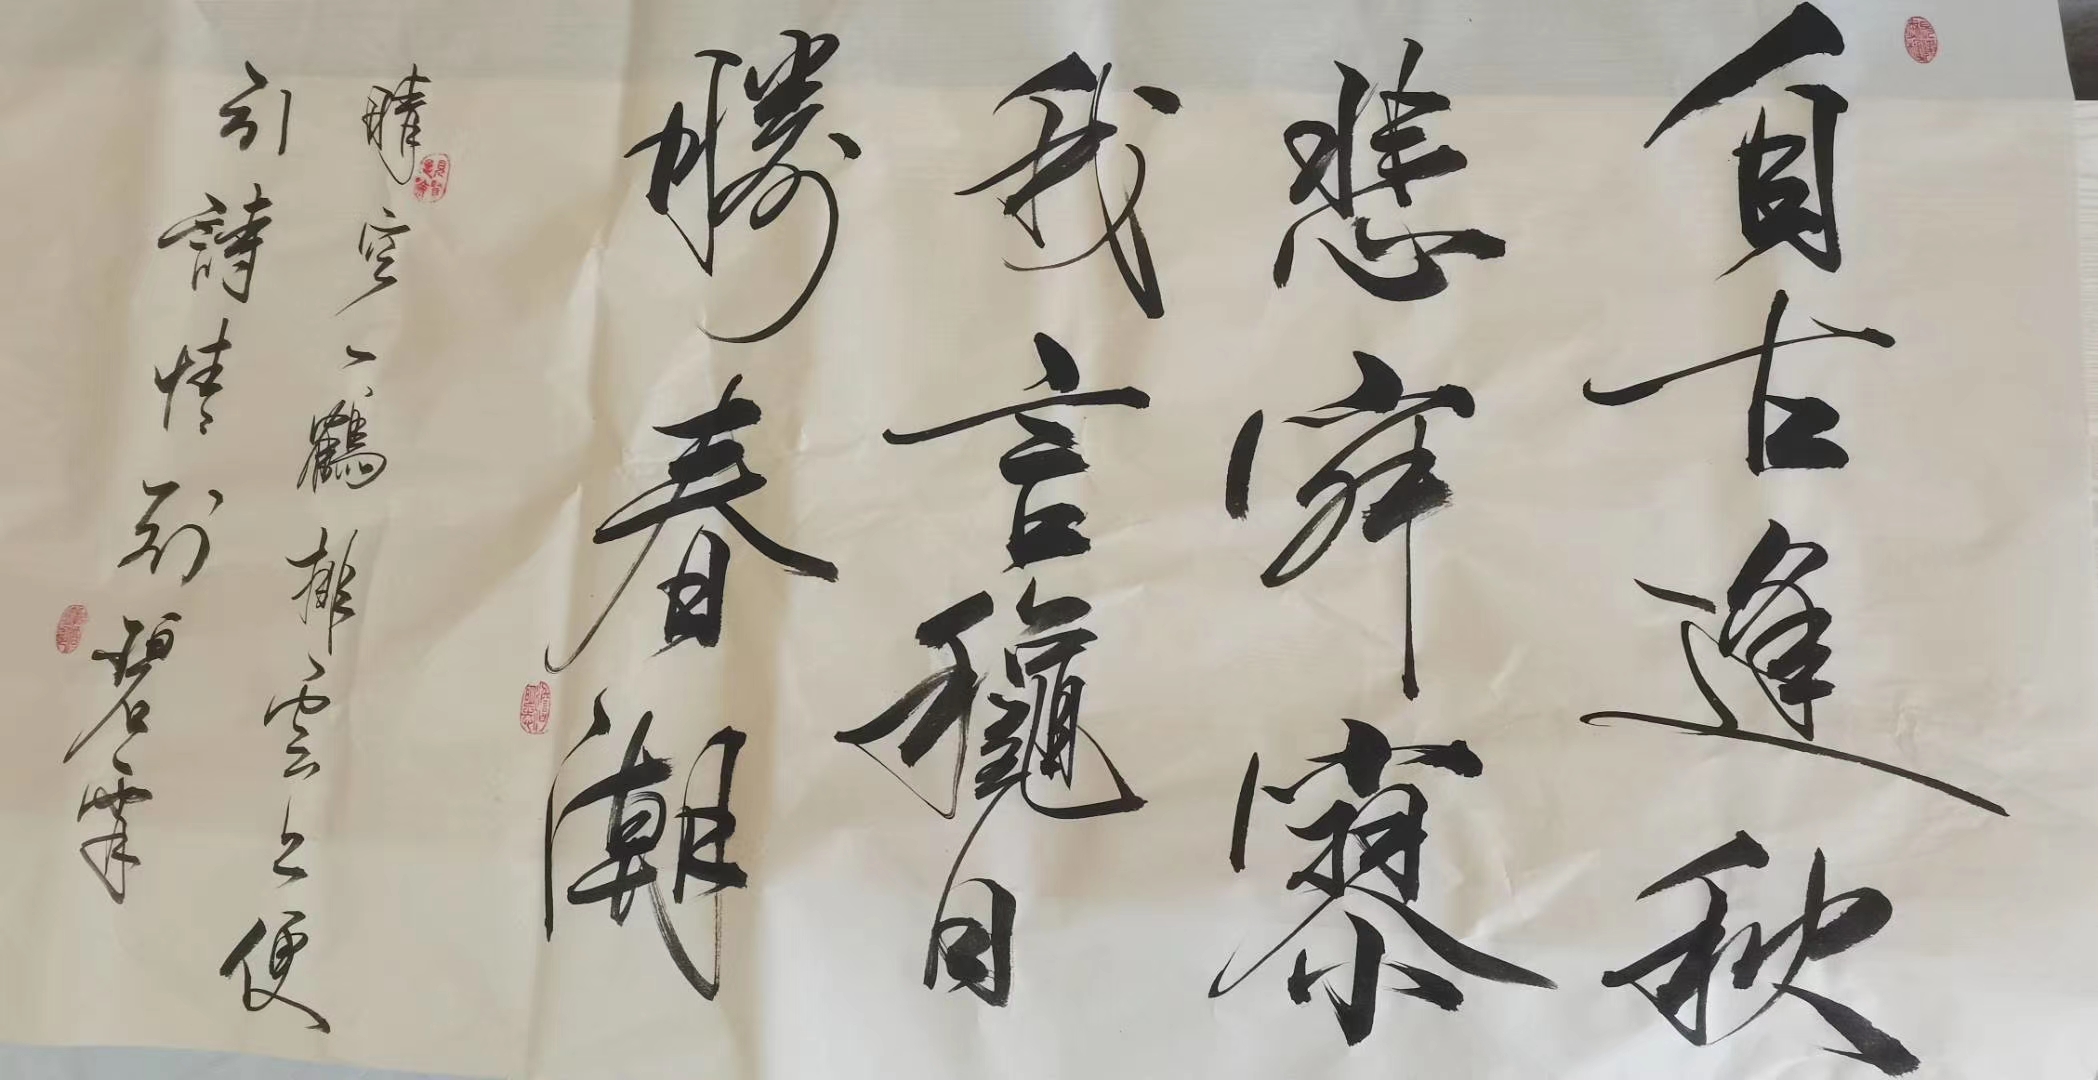 自古逢秋
悲寂寥
我言龝日
勝春潮
晴空一鶴排雲上便
引詩情到碧霄